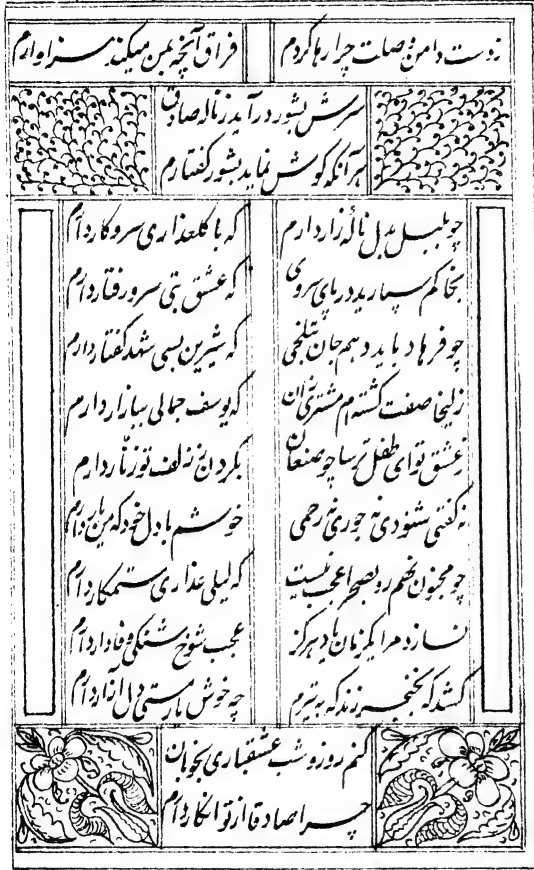 ز دست دامن وصلت چرا رها کردم
فراق آنچه بمن میکند سزاوارم
سرش بشور درآید ز ناله صادق
هرآنکه گوش نماید بشور گفتارم
چو بلبل بدل نالهٔ زار دارم
که با گلعذاری سروکار دارم
بخاکم سپارید در پای سروی
که عشق بتی سرو رفتار دارم
چو فرهاد باید دهم جان بتلخی
که شیرین بسی شهد گفتار دارم
زلیخا صفت گشته‌ام مشتری زان
که یوسف جمالی ببازار دارم
ز عشق تو ای طفل ترسا چو صنعان
بگردن ز زلف تو زنّار دارم
نه گفتی شنودی نه جوری نه رحمی
خوشم با دل خود که من یار دارم
چو مجنون نهم رو بصحرا عجب نیست
که لیلی عذاری ستمکار دارم
نسازد مرا یکزمان یاد هرگز
عجب شوخ سنگی وفادار دارم
کشد گه بخنجر زند گه به تیرم
چه خوش یار مستی دل آزار دارم
کنم روز و شب عشقبازی بخوبان
چرا صادقا از تو انکار دارم